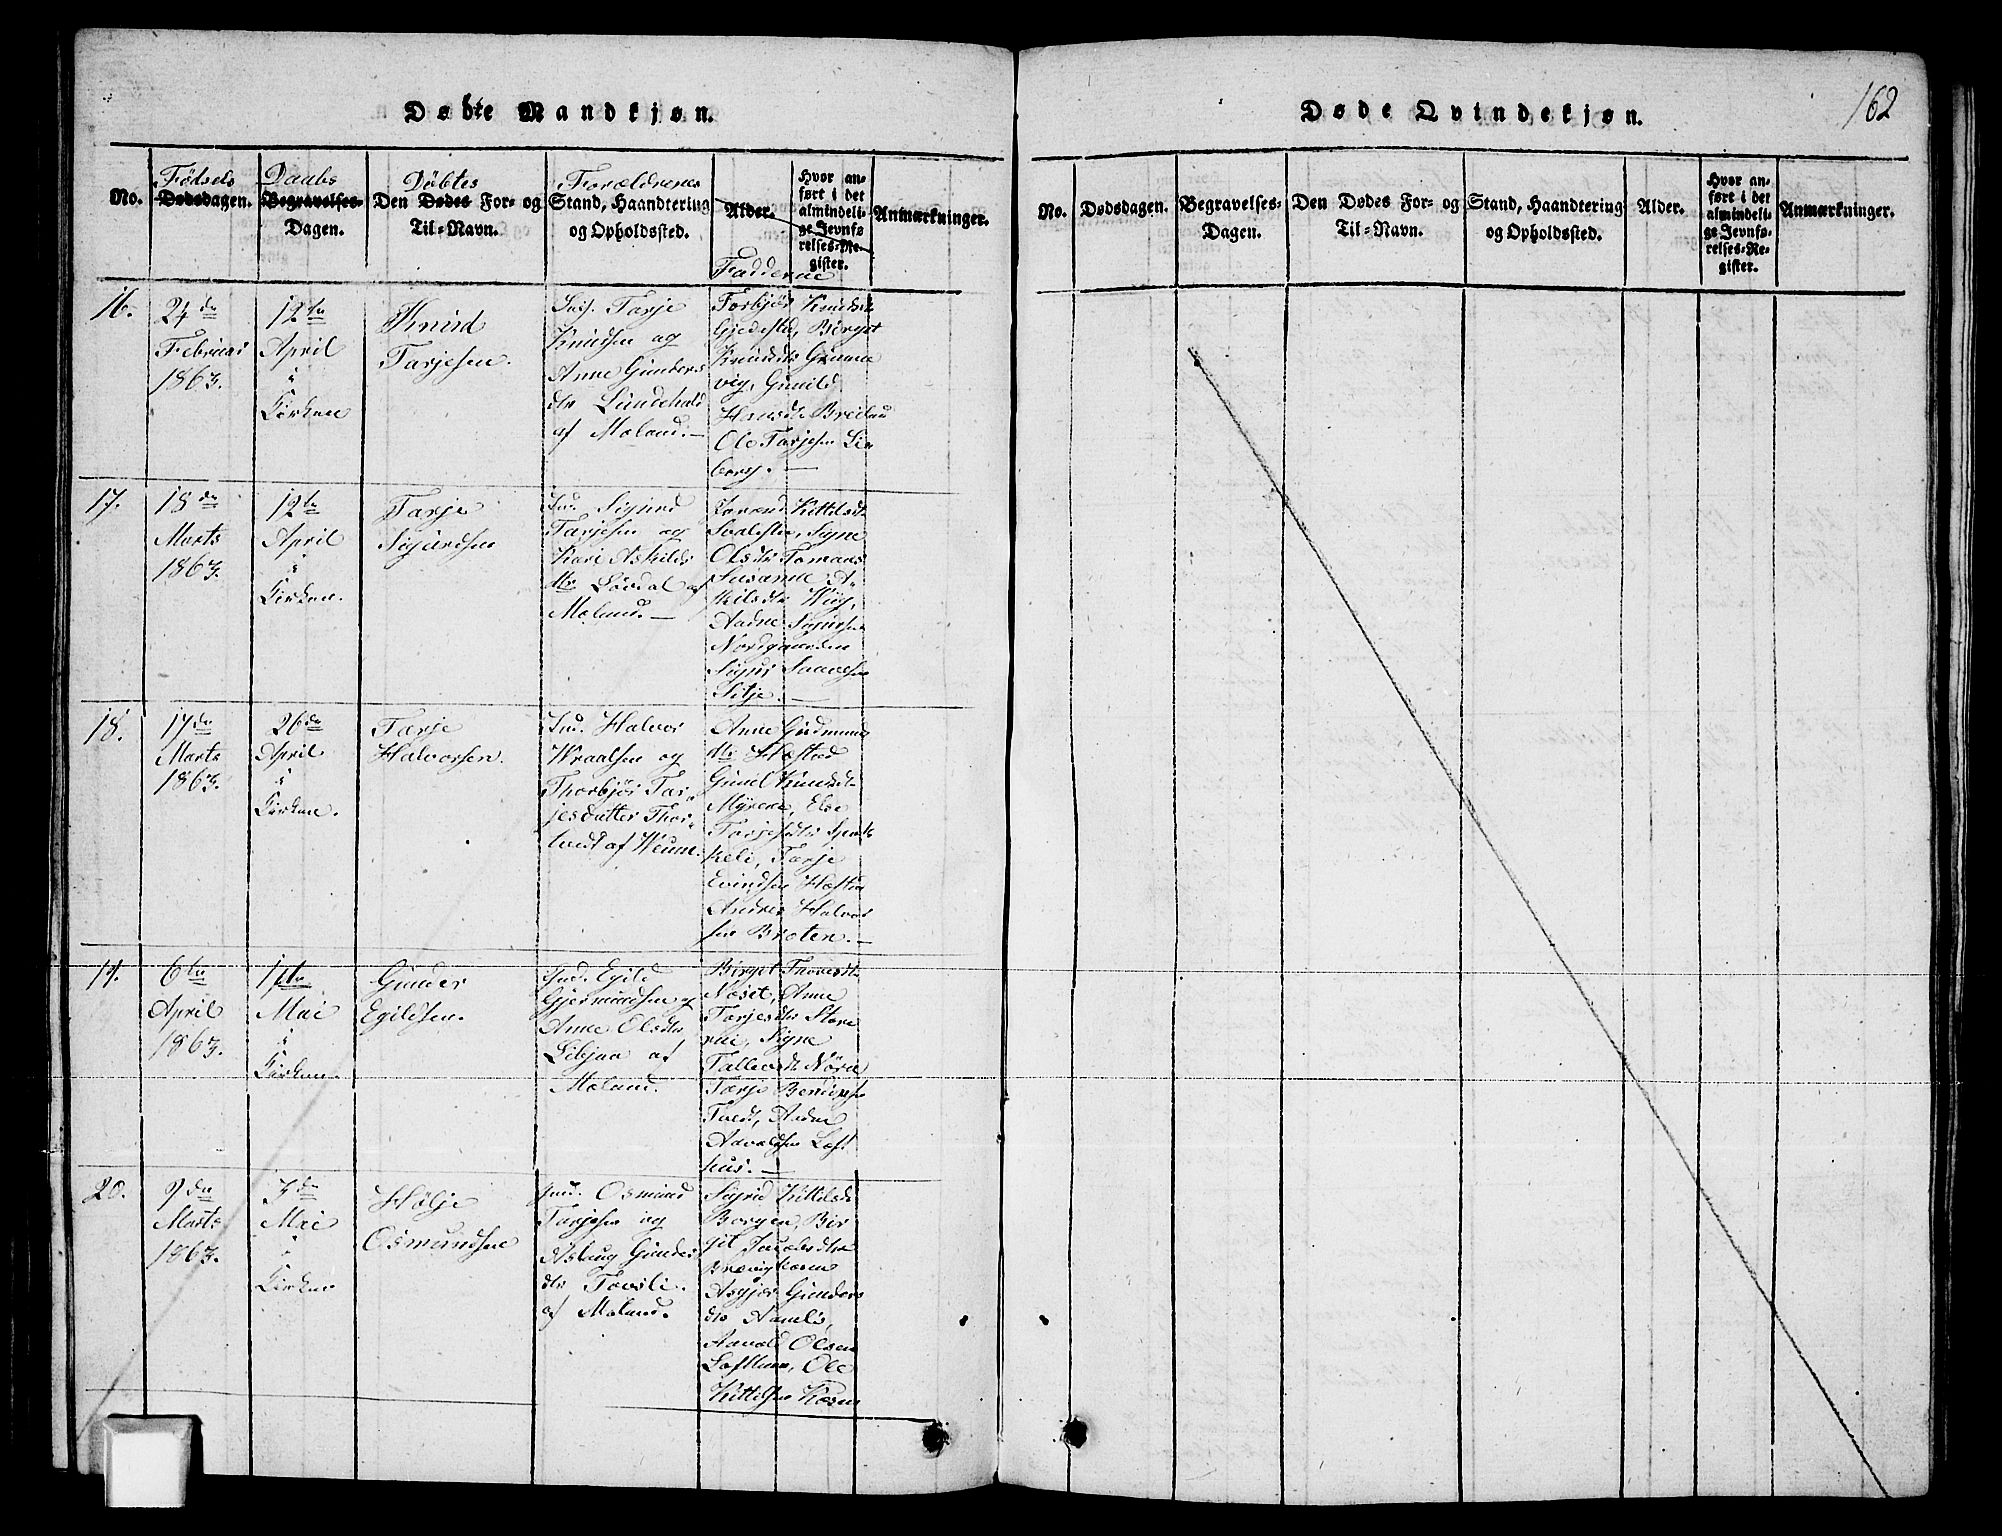 Døbte Mandkjøn.
No.
Fødsels
Dødsdagen.
Daabs
Begravelses-
Dagen.
Døbtes
Den Dødes For- og
Til-Navn.
Forældrenes
Stand, Haandtering
og Opholdssted.
Alder.
Hvor an-
ført i det
almindeli-
ge Jevnfø-
relses-Re-
gister.
Anmærkninger.
Fadderne
16.
24de
Februar
1863.
12te
April
i
Kirken
Knud
Tarjesen.
Ind. Tarje
Knudsen og
Anne Gunders
dtr Lundehald
af Moland.—
Torbjør Knudsdtr
Gjedestø, Birgit
Knudsdtr Grunne
vig, Gunild
Breiland
Ole Tarjesen Li-
berg.—
17.
18de
Marts
1863.
12te
April
i
Kirken.
Tarje
Sigurdsen
Ind. Sigurd
Tarjesen og
Kari Askilds
dtr Løvdal af
Moland.—
Kittilsdtr
Svalestø, Sygne
Olsdtr Tomaas
Susanne A-
skilsdtr Wiig,
Aadne Sigursen
Nordgaarden
Sigur Saavesen
Sitje.—
18.
17de
Marts
1863.
26de
April
i
Kirken.
Tarje
Halvorsen.
Ind. Halvor
Wraalsen og
Thorbjør Tar-
jesdatter Thor-
tvedt af Weum.
Anne Gudmunds
dtr Hæstad
Gunil Knudsdtr
Myrene, Else
Tarjesdtr Spok
keli, Tarje
Evindsen Hæstad
Andres Halvor
sen Bråten.—
19.
6te
April
1863.
1ste
Mai
i
Kirken.
Gunder
Egildsen.
Ind. Egild
Gjermundsen og
Anne Olsdtr
Libjaa af
Moland.
Birgit Thoresdtr
Næset, Anne
Tarjesdtr Store
rui, Signe
Tallevsdtr Nørde
Tarje Bendixsen
Tvedt, Aadne
Aavaldsen Loft
hus.—
20.
9de
Marts
1863.
3de
Mai
i
Kirken
Hølje
Osmundsen
Ind. Osmund
Tarjesen og
Aslaug Gunders
dtr Tovsli.
af Moland.
Sigrid Kittilsdtr
Borgen, Bir
git Jacobsdtr
Asgjer Gunders
dtr Aamli,
Aavold Olsen
Lofthuus, Ole
Kittilsen
Døde Qvindekjøn.
162
No.
Dødsdagen.
Begravelses-
Dagen.
Den Dødes For- og
Til-Navn.
Stand, Haandtering
og Opholdssted.
Alder.
Hvor an-
ført i det
almindeli-
ge Jevnfø-
relses-Re-
gister.
Anmærkninger.